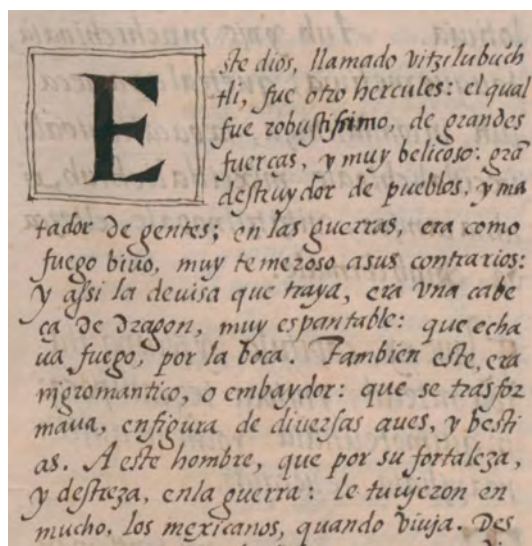 Este dios, llamado vitzilubuch
tli, fue otro hercules: el qual
fue robustissimo, de grandes
fuerças, y muy belicoso: grã
destruydor de pueblos, y ma
tador de gentes; en las guerras, era como
fuego biuo, muy temeroso asus contrarios:
y assi la deuisa que traya, era vna cabe
ça de dragon, muy espantable: que echa
ua fuego, por la boca. Tambien este, era
nigromantico, o embaydor: que se trasfor
maua, enfigura de diuersas aues, y besti
as. A este hombre, que por su fortaleza,
y destreza, enla guerra: le tuujeron en
mucho, los mexicanos, quando viuja. Des